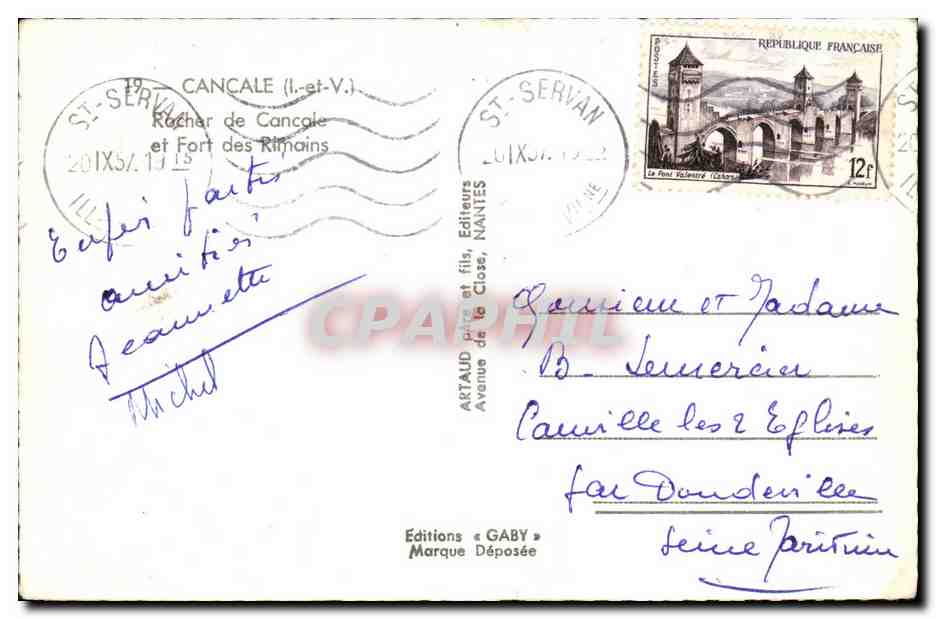 19 — CANCALE (I.-et-V.)
Rocher de Cancale
et Fort des Rimains
ST-SERVAN
20 IX 57. 19 15
ILL
ST-SERVAN
20 IX 57. 19
VILAINE
POSTES
REPUBLIQUE FRANÇAISE
Le Pont Valentré (Cahors)
12f
amitiés
Jeannette
Michel
ARTAUD père et fils, Editeurs
Avenue de la Close, NANTES
CPAPHIL
Monsieur et Madame
B- Lemercier
Canville les 2 Eglises
par Doudeville
Seine Maritime
Editions « GABY »
Marque Déposée